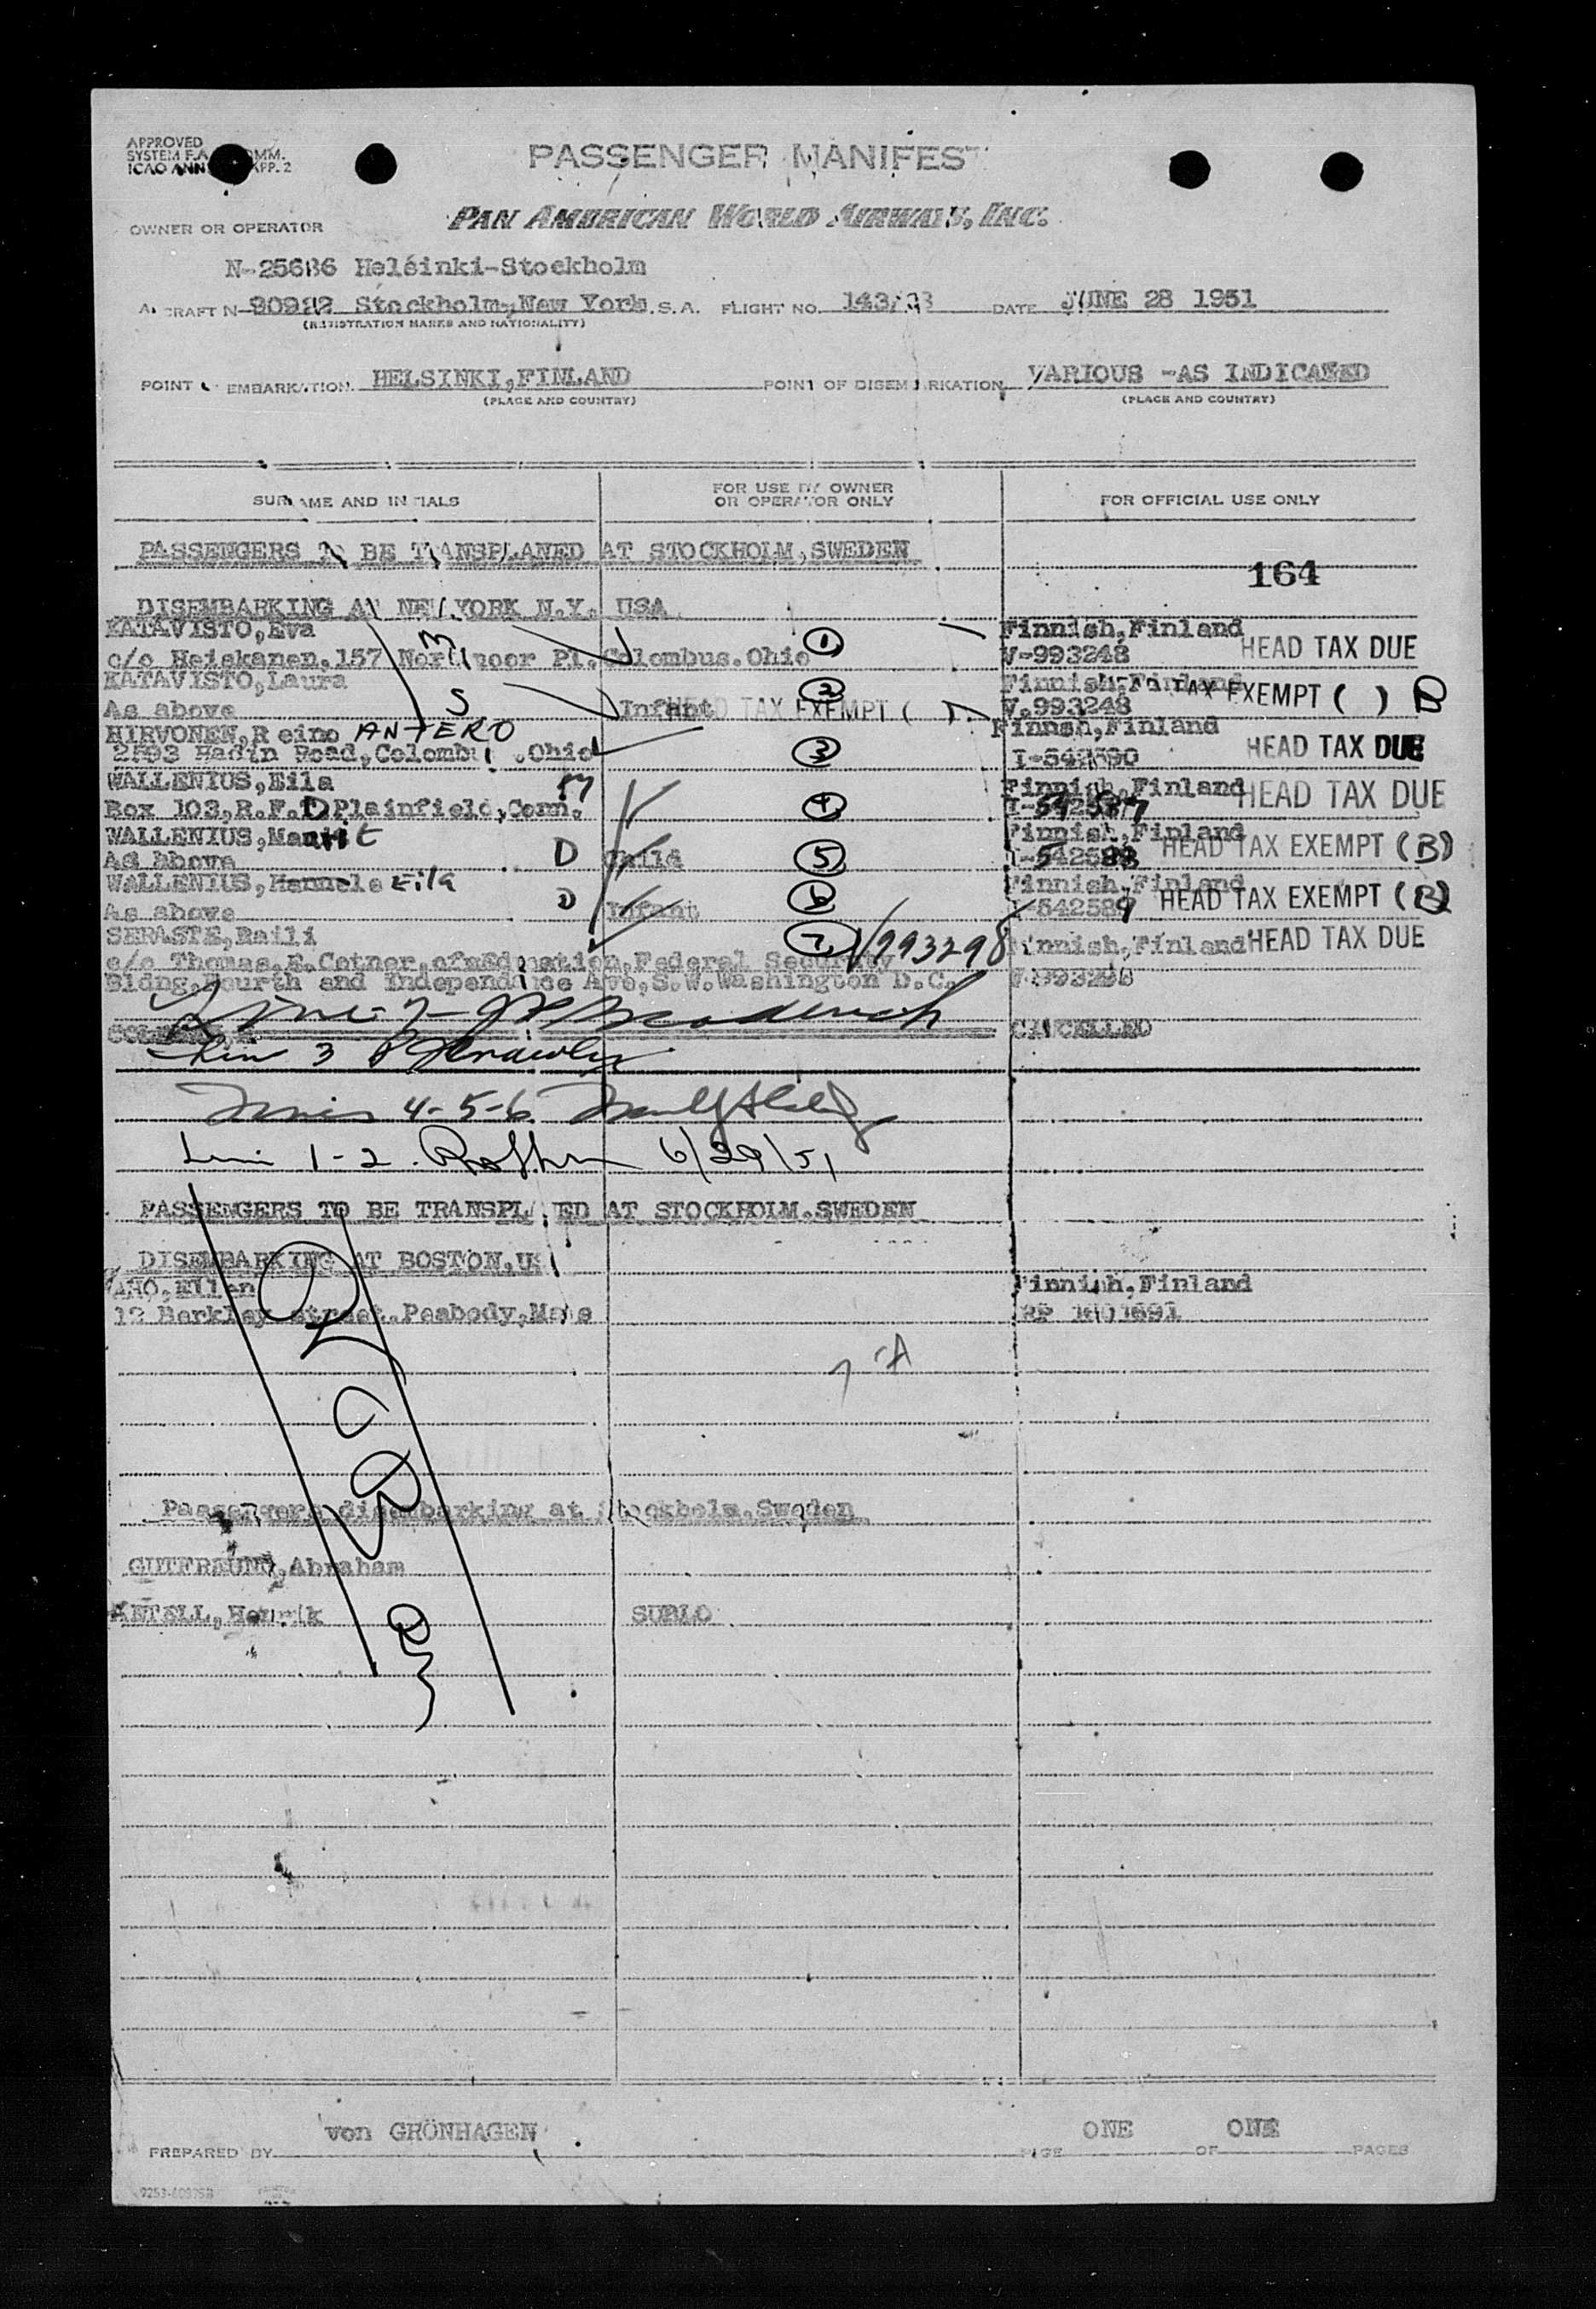 APPROVED
SYSTEM F.A. COMM.
ICAO ANN APP. 2
PASSENGER MANIFEST
OWNER OR OPERATOR PAN AMERICAN WORLD AIRWAYS, INC.
N-25686 Helsinki-Stockholm
AIRCRAFT N-90922 Stockholm-New York U.S.A. FLIGHT NO. DATE JUNE 28 1951
(REGISTRATION MARKS AND NATIONALITY)
POINT OF EMBARKATION HELSINKI, FINLAND POINT OF DISEMBARKATION VARIOUS -AS INDICATED
(PLACE AND COUNTRY) (PLACE AND COUNTRY)
SURNAME AND INITIALS FOR USE BY OWNER OR OPERATOR ONLY FOR OFFICIAL USE ONLY
PASSENGERS TO BE TRANSPLANED AT STOCKHOLM, SWEDEN
164
DISEMBARKING AT NEW YORK N.Y. USA
KATAVISTO, Eva M 1 Finnish, Finland
c/o Heiskanen, 157 Pl. Colombus. Ohio V-993248 HEAD TAX DUE
KATAVISTO, Laura S 2 Finnish, Finland
As above Infant HEAD TAX EXEMPT ( ) V.993248 TAX EXEMPT ( ) B
HIRVONEN, Reino ANTERO Finnsh, Finland
2593 Road, Colombu .Ohio 3 I-542590 HEAD TAX DUE
WALLENIUS, Eila M Finnish, Finland HEAD TAX DUE
Box 103, R.F.D Plainfield, Conn. 4 I-542587
WALLENIUS, Marit Finnish, Finland
As above D Child 5 I-542588 HEAD TAX EXEMPT (B)
WALLENIUS, Hannele Eila Finnish, Finland
As above D Infant 6 I-542589 HEAD TAX EXEMPT (B)
SERASTE, Raili 7 V993298 Finnish, Finland HEAD TAX DUE
c/o Thomas. E. Cotner, Education, Federal Security
Bldng, Fourth and Independance Ave, S.W. Washington D.C. V-993298
CANCELLED
Line 3
Lines 4-5-6
Line 1-2. 6/29/51
PASSENGERS TO BE TRANSPLANED AT STOCKHOLM. SWEDEN
DISEMBARKING AT BOSTON, US
AHO, Ellen Finnish, Finland
12 Barkley street. Peabody, Mass RP 1001691
Passengers disembarking at Stockholm. Sweden
GUTFREUND, Abraham
ANTELL, Henrik SUBLO
PREPARED BY von GRÖNHAGEN PAGE ONE OF ONE PAGES